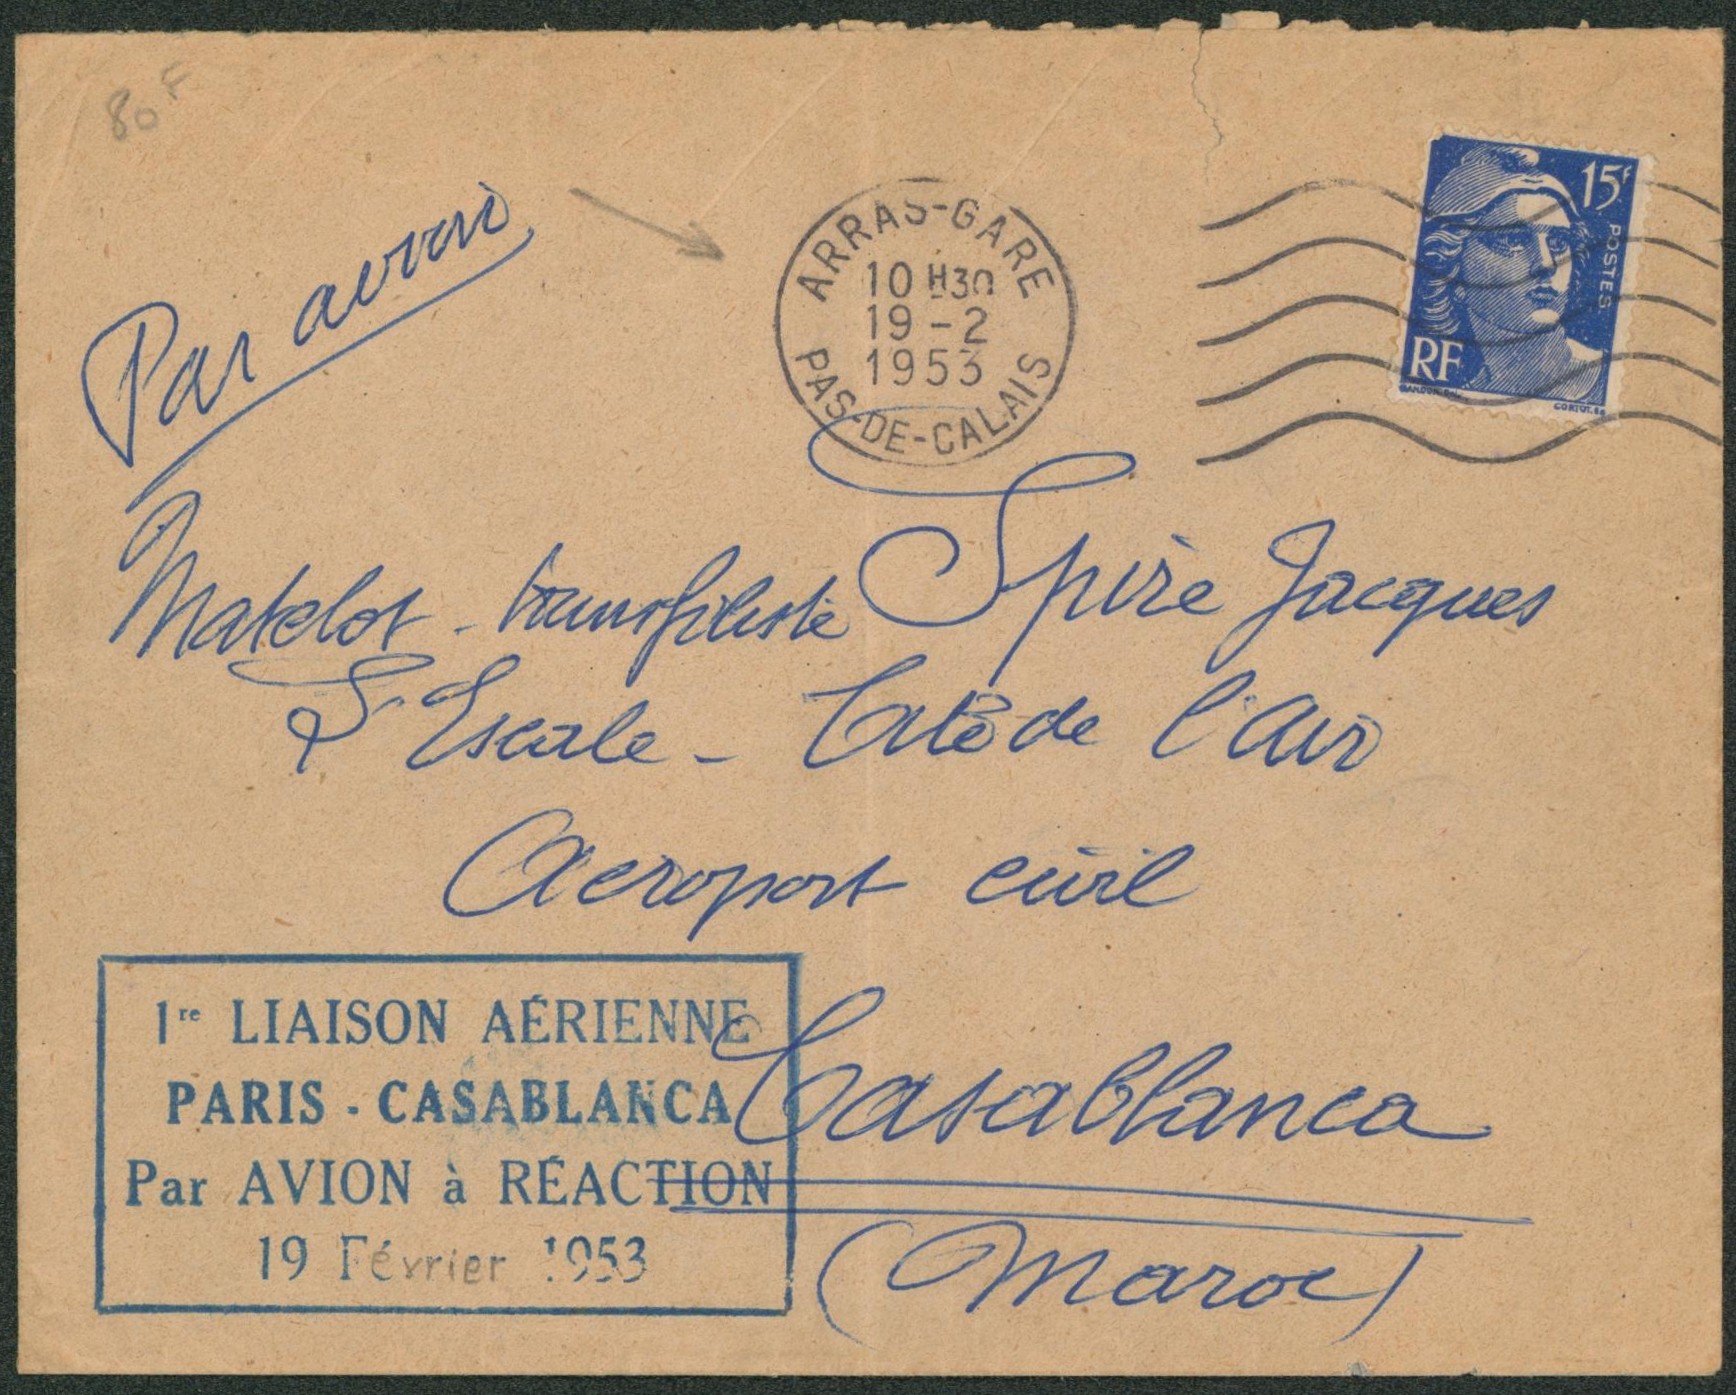 80F
Par avion
ARRAS-GARE
10 H30
19-2
1953
PAS-DE-CALAIS
15F
POSTES
RF
GANDON
CORTOT
Matelot - transfiliste Spire Jacques
Escale - de l'Air
Aeroport civil
Casablanca
(Maroc)
1re LIAISON AÉRIENNE
PARIS - CASABLANCA
Par AVION à RÉACTION
19 Février 1953